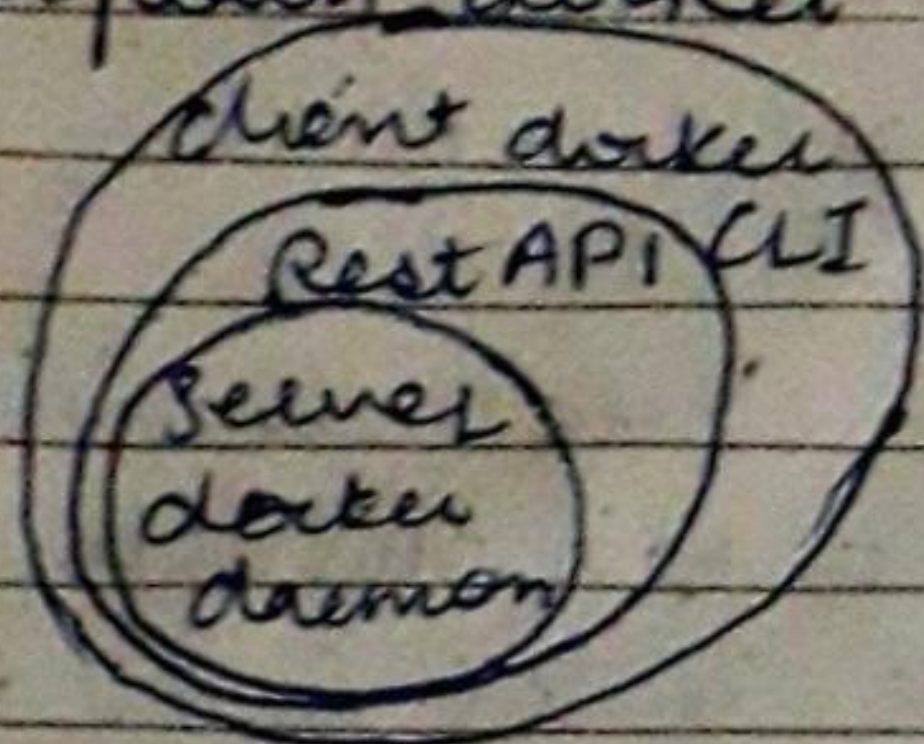 client docker
CLI
Rest API
Server
docker
daemon